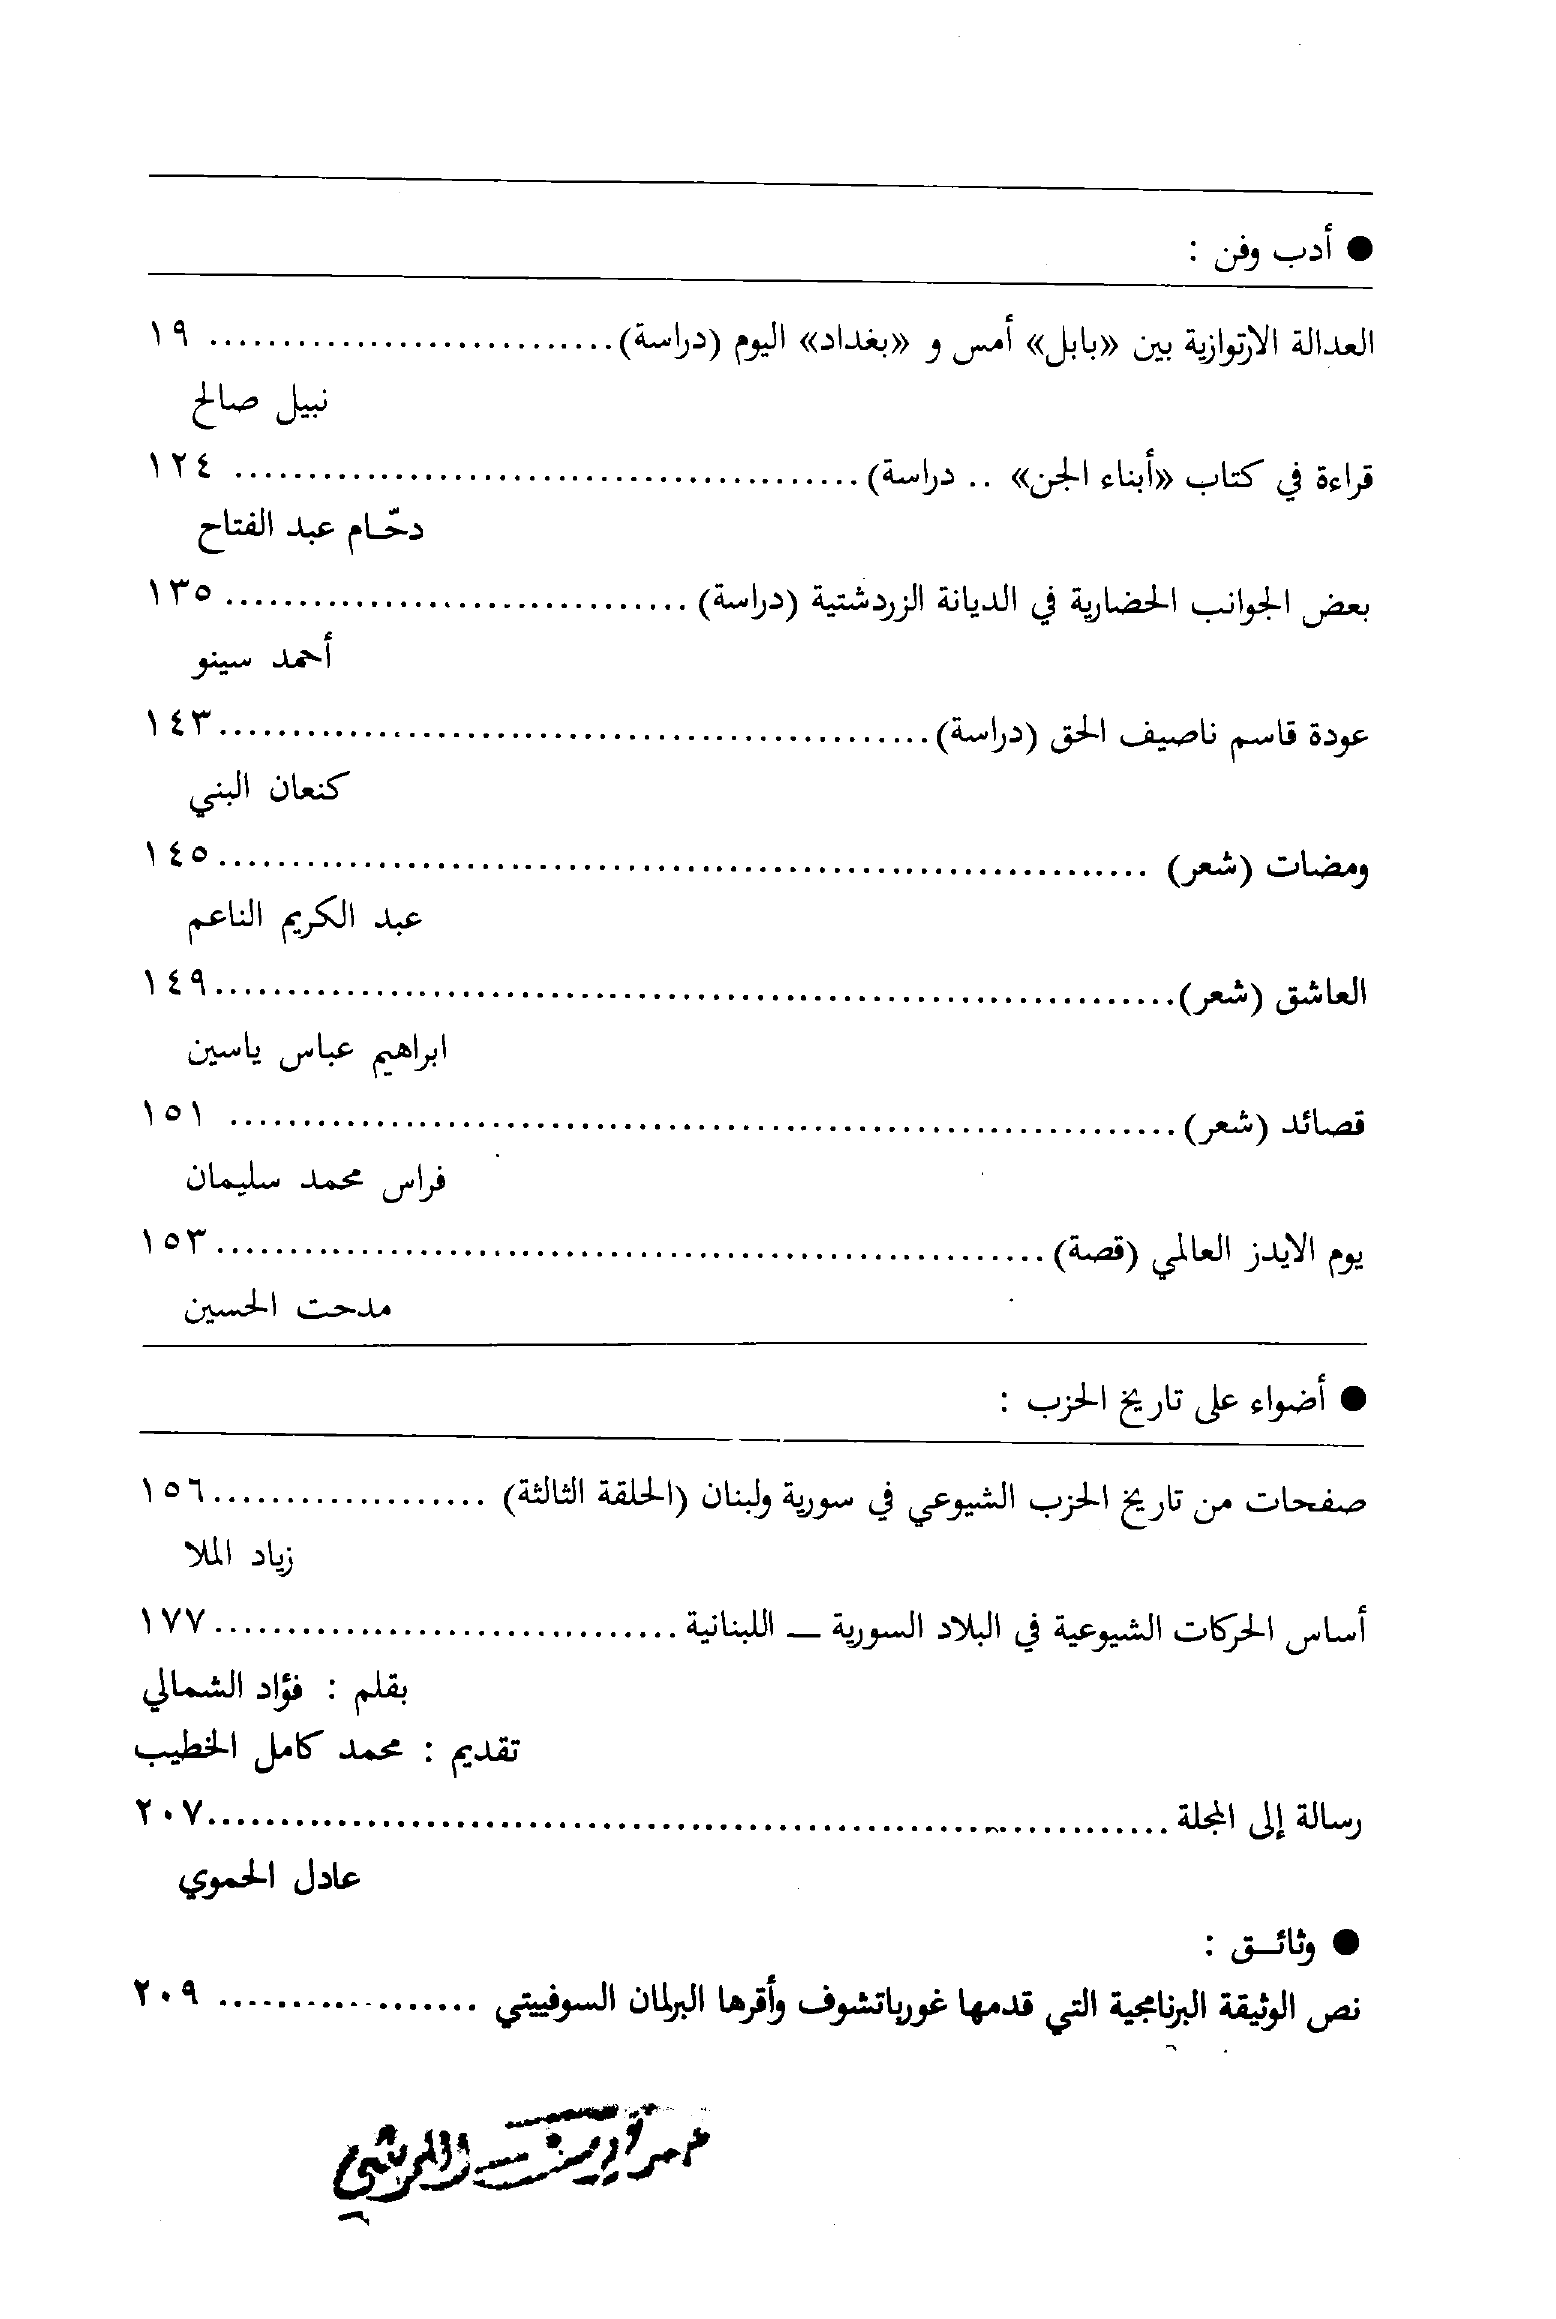 ● أدب وفن :
العدالة الارتوازية بين «بابل» أمس و «بغداد» اليوم (دراسة)............................ ١٩
نبيل صالح
قراءة في كتاب «أبناء الجن» .. دراسة)........................................... ١٢٤
دحّام عبد الفتاح
بعض الجوانب الحضارية في الديانة الزردشتية (دراسة)................................ ١٣٥
أحمد سينو
عودة قاسم ناصيف الحق (دراسة)................................................. ١٤٣
كنعان البني
ومضات (شعر) ................................................................ ١٤٥
عبد الكريم الناعم
العاشق (شعر).................................................................. ١٤٩
ابراهيم عباس ياسين
قصائد (شعر)................................................................. ١٥١
فراس محمد سليمان
يوم الايدز العالمي (قصة)......................................................... ١٥٣
مدحت الحسين
● أضواء على تاريخ الحزب :
صفحات من تاريخ الحزب الشيوعي في سورية ولبنان (الحلقة الثالثة) ................... ١٥٦
زياد الملا
أساس الحركات الشيوعية في البلاد السورية ــ اللبنانية................................ ١٧٧
بقلم : فؤاد الشمالي
تقديم : محمد كامل الخطيب
رسالة إلى المجلة.................................................................. ٢٠٧
عادل الحموي
● وثائـق :
نص الوثيقة البرنامجية التي قدمها غورباتشوف وأقرها البرلمان السوفييتي .................. ٢٠٩